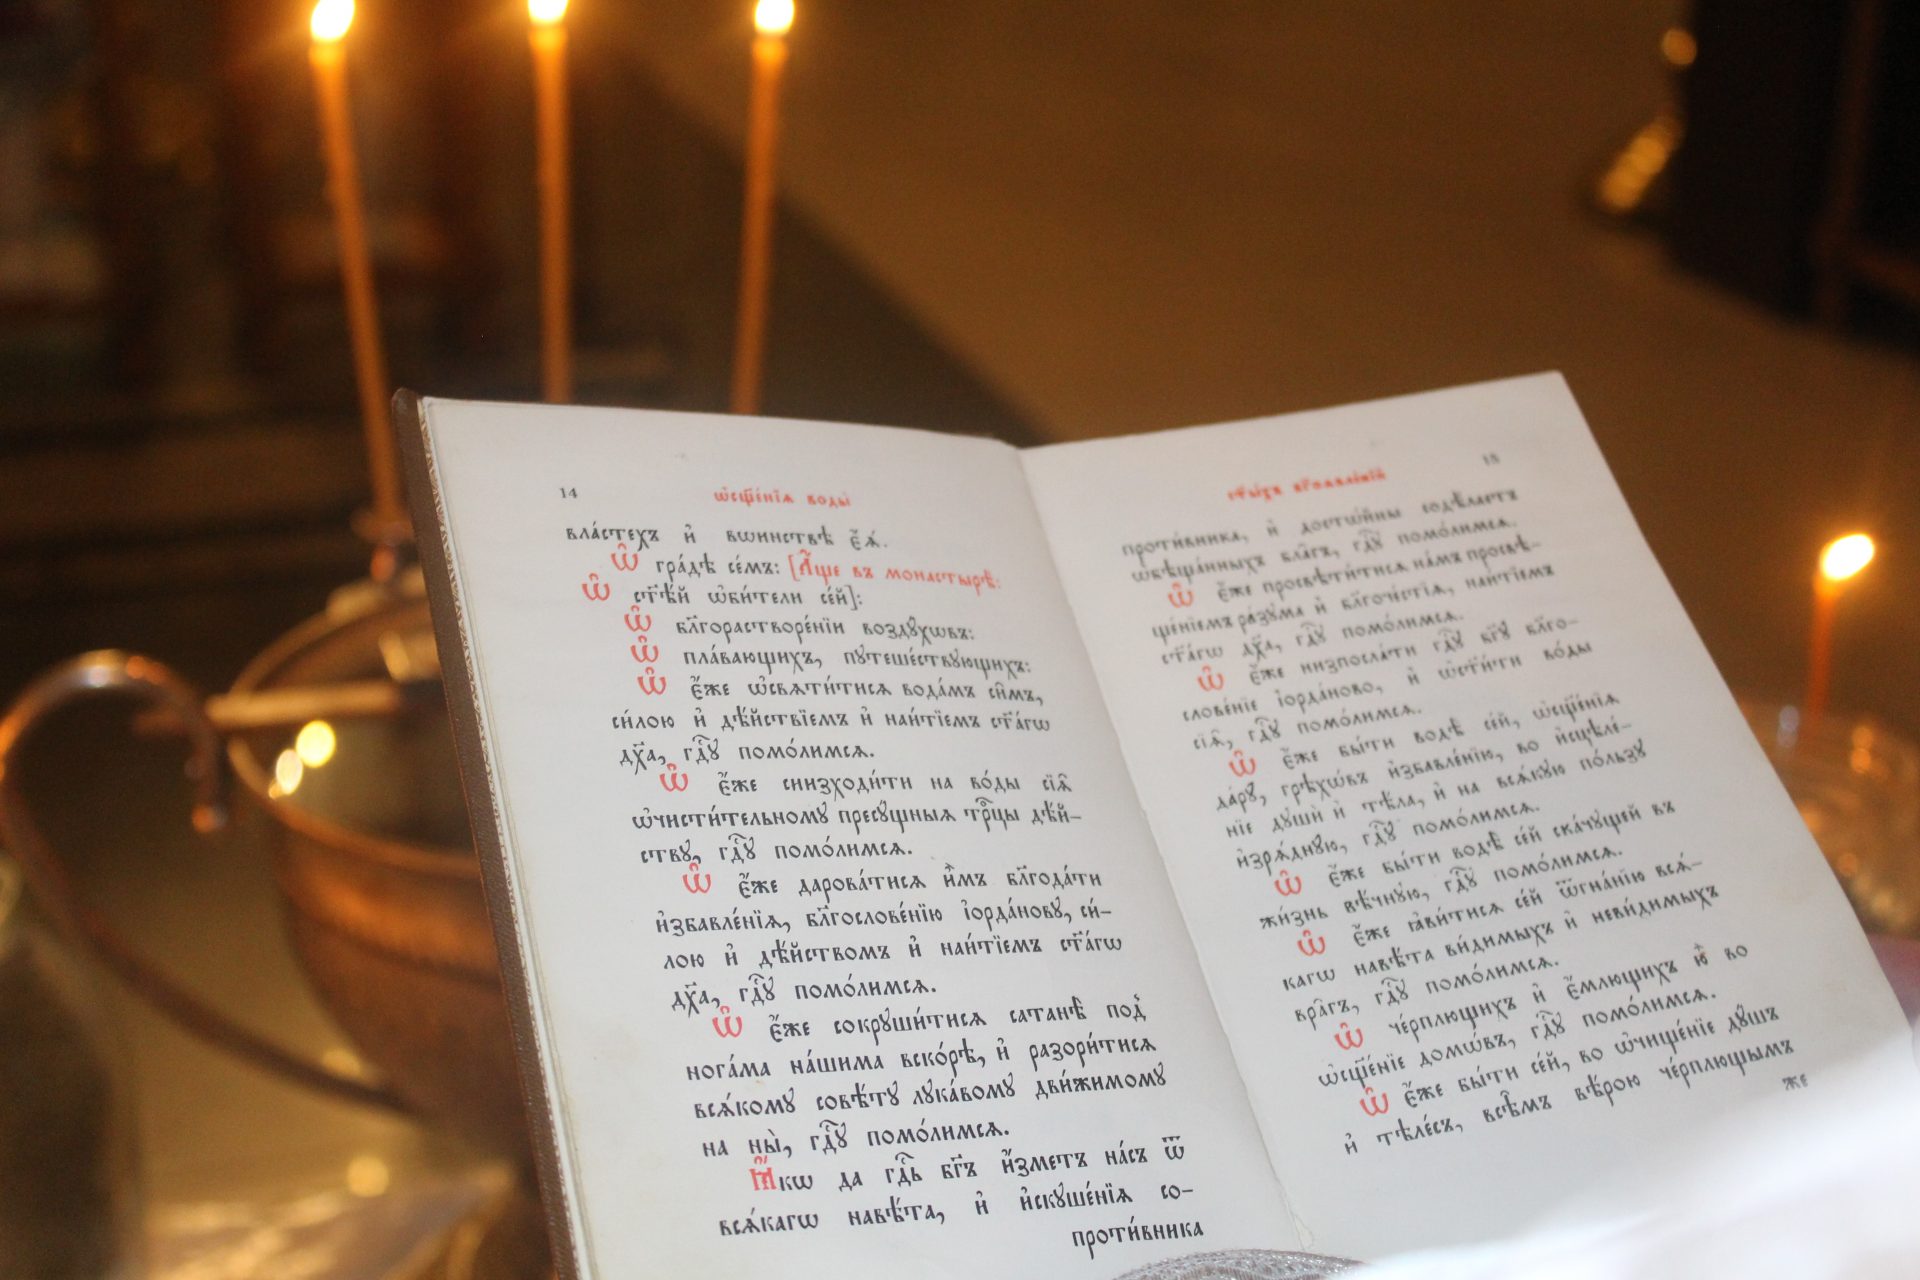 14
ѡ҆сщ҃е́нїѧ воды̀
вла́стехъ и҆ вѡинствѣ є҆ѧ̀.
Ѡ҆ гра́дѣ се́мъ: [А҆́ще въ монастырѣ̀:
Ѡ҆ ст҃ѣ́й ѡ҆би́тели се́й]:
Ѡ҆ бл҃горастворе́нїи возду́хѡвъ:
Ѡ҆ пла́вающихъ, путеше́ствующихъ:
Ѡ҆ є҆́же ѡ҆свѧти́тисѧ вода́мъ си̑мъ,
си́лою и҆ дѣ́йствїемъ и҆ наи́тїемъ ст҃а́гѡ
дх҃а, гдⷭ҇ꙋ помо́лимсѧ.
Ѡ҆ є҆́же снизходи́ти на во́ды сїѧ̑
ѡ҆чисти́тельному пресущныѧ трⷪ҇цы дѣ́й-
ству, гдⷭ҇ꙋ помо́лимсѧ.
Ѡ҆ є҆́же дарова́тисѧ и҆̀мъ бл҃года́ти
и҆збавле́нїѧ, бл҃гослове́нїю і҆орда́нову, си́-
лою и҆ дѣ́йствомъ и҆ наи́тїемъ ст҃а́гѡ
дх҃а, гдⷭ҇ꙋ помо́лимсѧ.
Ѡ҆ є҆́же сокруши́тисѧ сатанѣ̀ под̾
нога́ма на́шима вско́рѣ, и҆ разори́тисѧ
всѧ́кому совѣ́ту лука́вому дви́жимому
на ны̀, гдⷭ҇ꙋ помо́лимсѧ.
Ꙗ҆́кѡ да гдⷭ҇ь бг҃ъ и҆́зметъ на́съ ѿ
всѧ́кагѡ навѣ́та, и҆ и҆скуше́нїѧ со-
проти́вника
15
ст҃ы́хъ бг҃оѧвле́нїй
проти́вника, и҆ досто́йны содѣ́лаетъ
ѡ҆бѣща́нныхъ бла̑гъ, гдⷭ҇ꙋ помо́лимсѧ.
Ѡ҆ є҆́же просвѣти́тисѧ на́мъ просвѣ-
ще́нїемъ ра́зума и҆ бл҃гоче́стїѧ, наи́тїемъ
ст҃а́гѡ дх҃а, гдⷭ҇ꙋ помо́лимсѧ.
Ѡ҆ є҆́же низпосла́ти гдⷭ҇ꙋ бг҃ꙋ бл҃го-
слове́нїе і҆орда́ново, и҆ ѡ҆ст҃и́ти во́ды
сїѧ̑, гдⷭ҇ꙋ помо́лимсѧ.
Ѡ҆ є҆́же бы́ти водѣ̀ се́й, ѡ҆сщ҃е́нїѧ
да́ру, грѣхѡ́въ и҆збавле́нїю, во и҆сцѣле́-
нїе душѝ и҆ тѣ́ла, и҆ на всѧ́кую по́льзу
и҆зрѧ́дную, гдⷭ҇ꙋ помо́лимсѧ.
Ѡ҆ є҆́же бы́ти водѣ̀ се́й ска́чущей въ
жи́знь вѣ́чную, гдⷭ҇ꙋ помо́лимсѧ.
Ѡ҆ є҆́же ꙗ҆ви́тисѧ се́й ѿгна́нїю всѧ́-
кагѡ навѣ́та ви́димыхъ и҆ неви́димыхъ
вра̑гъ, гдⷭ҇ꙋ помо́лимсѧ.
Ѡ҆ че́рплющихъ и҆ є҆́млющихъ ю҆̀ во
ѡ҆сщ҃е́нїе домѡ́въ, гдⷭ҇ꙋ помо́лимсѧ.
Ѡ҆ є҆́же бы́ти се́й, во ѡ҆чище́нїе дꙋ́шъ
и҆ тѣле́съ, всѣ̑мъ вѣ́рою че́рплющымъ
же